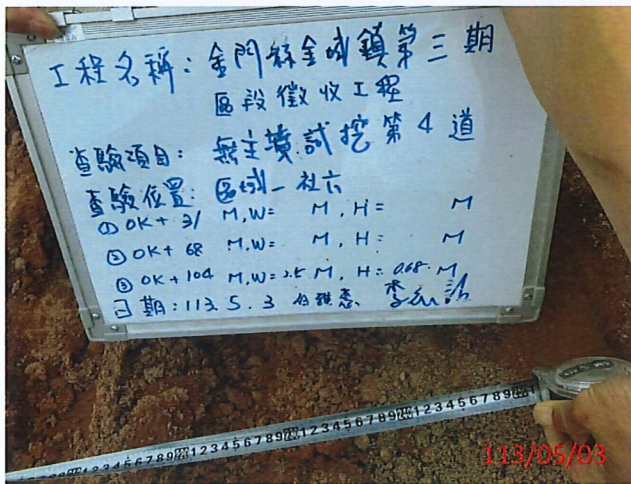 工程名稱：金門縣金城鎮第三期
區段徵收工程
查驗項目：無主墳試挖第4道
查驗位置：區域一 社六
① 0K+31 M,W= M,H= M
② 0K+68 M,W= M,H= M
③ 0K+104 M,W=2.5 M,H=0.68 M
日期：113.5.3
113/05/03